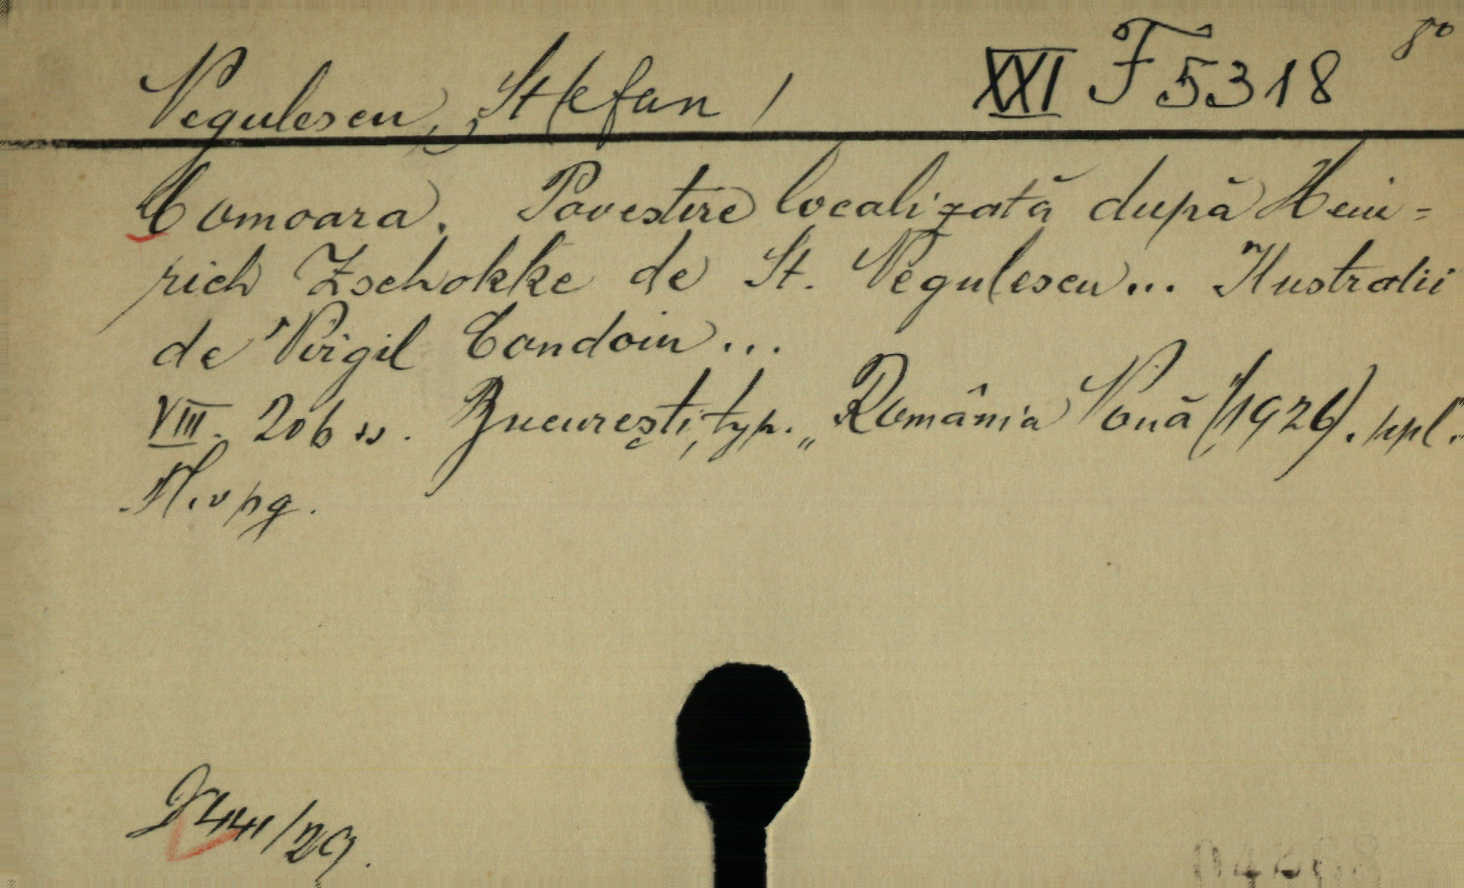 Negulescu, St/efan/ XXI F 5318 8°
Comoara. Povestire localizată după Hein=
rich Zschokke de St. Negulescu... Ilustrații
de Virgil Condoiu...
VIII. 206 s. București, typ. „România Nouă (1926).
D 441/29.